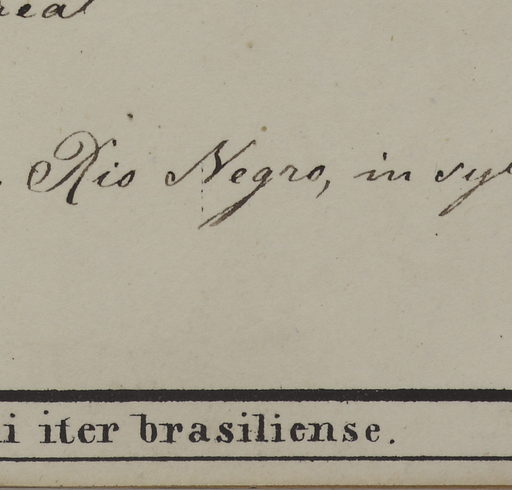 Rio Negro, in
iter brasiliense.